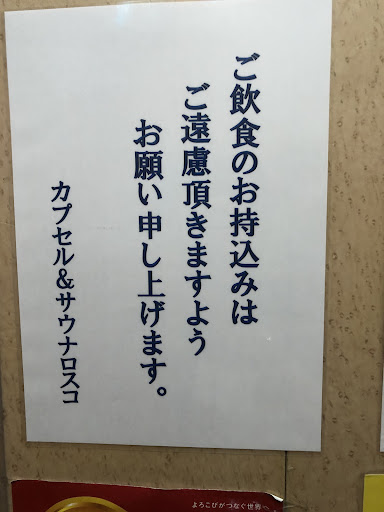 ご飲食のお持込みは
ご遠慮頂きますよう
お願い申し上げます。
カプセル&サウナロスコ
よろこびがつなぐ世界へ